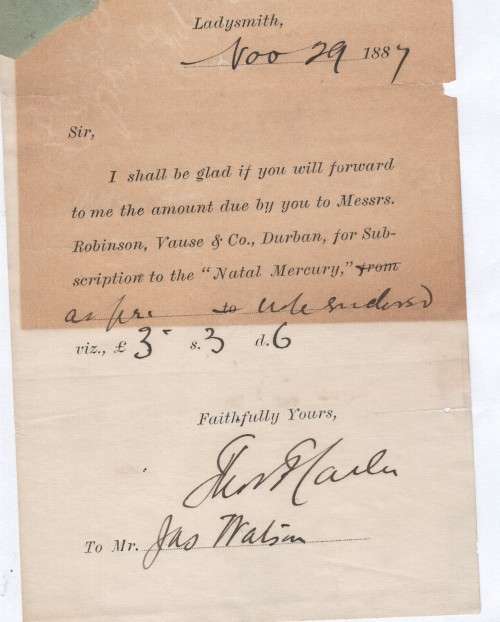 Ladysmith,
Nov 29 1887
Sir,
I shall be glad if you will forward
to me the amount due by you to Messrs.
Robinson, Vause & Co., Durban, for Sub-
scription to the “Natal Mercury,” from
as per to
viz., £ 3 s. 3 d. 6
Faithfully Yours,
To Mr. Jas Watson